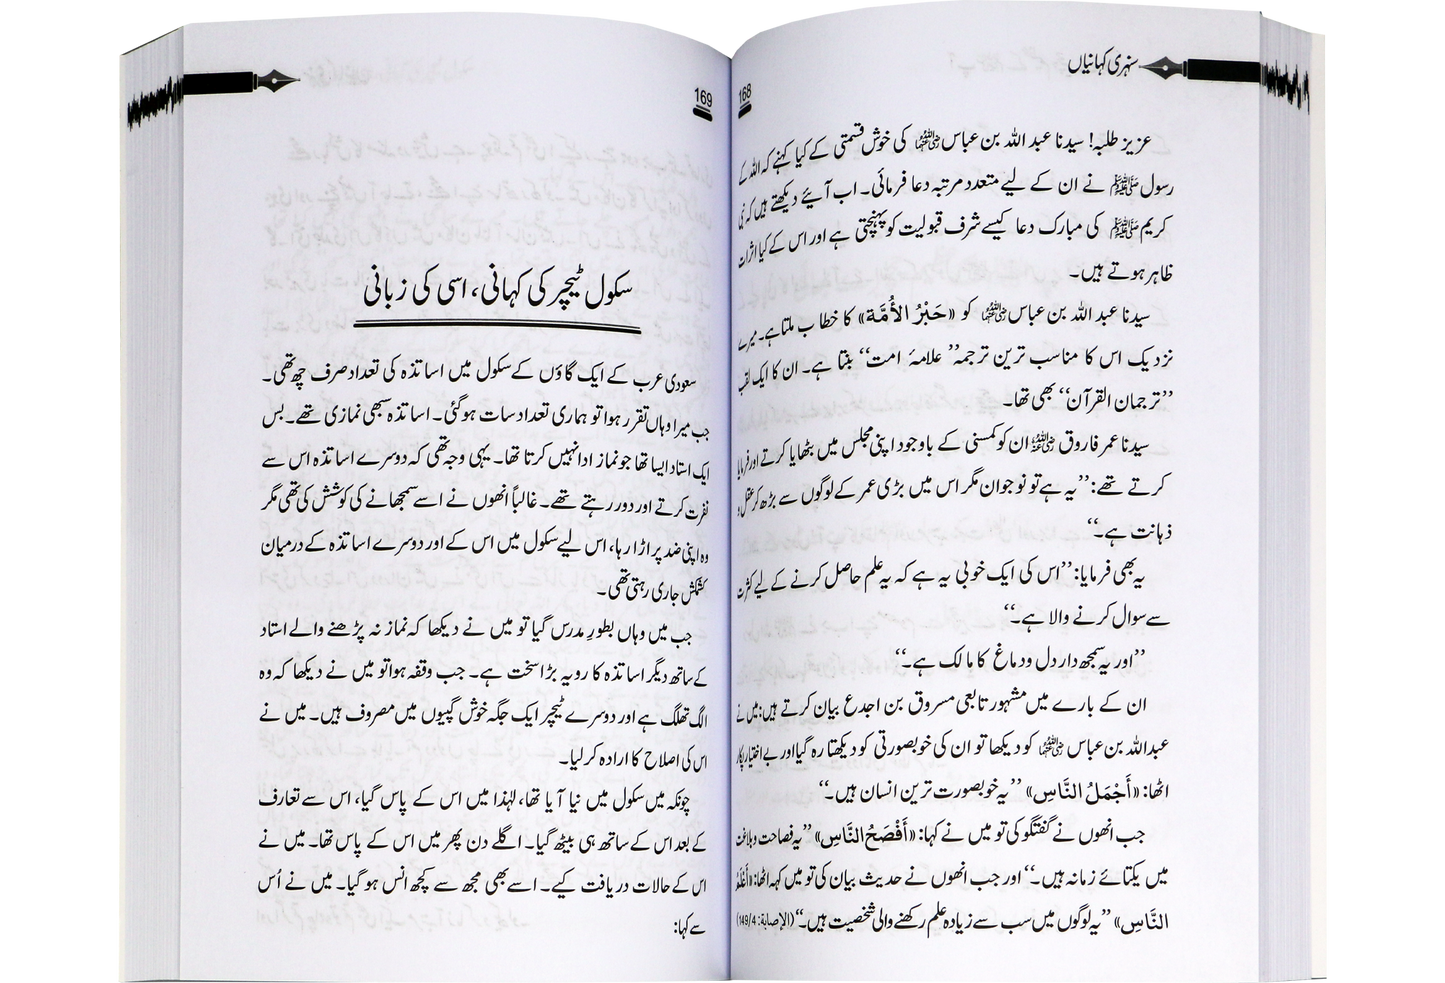 سنہری کہانیاں
168
عزیز طلبہ! سیدنا عبد اللہ بن عباس رضی اللہ عنہما کی خوش قسمتی کے کیا کہنے کہ اللہ کے
رسول ﷺ نے ان کے لیے متعدد مرتبہ دعا فرمائی۔ اب آیئے دیکھتے ہیں کہ نبی
کریم ﷺ کی مبارک دعا کیسے شرف قبولیت کو پہنچتی ہے اور اس کے کیا اثرات
ظاہر ہوتے ہیں۔
سیدنا عبد اللہ بن عباس رضی اللہ عنہما کو «حَبْرُ الأُمَّة» کا خطاب ملتا ہے۔ میرے
نزدیک اس کا مناسب ترین ترجمہ ’’علامۂ امت‘‘ بنتا ہے۔ ان کا ایک لقب
’’ترجمان القرآن‘‘ بھی تھا۔
سیدنا عمر فاروق رضی اللہ عنہ ان کو کمسنی کے باوجود اپنی مجلس میں بٹھایا کرتے اور فرمایا
کرتے تھے: ’’یہ ہے تو نوجوان مگر اس میں بڑی عمر کے لوگوں سے بڑھ کر عقل و
ذہانت ہے۔‘‘
یہ بھی فرمایا: ’’اس کی ایک خوبی یہ ہے کہ یہ علم حاصل کرنے کے لیے کثرت
سے سوال کرنے والا ہے۔‘‘
’’اور یہ سمجھ دار دل و دماغ کا مالک ہے۔‘‘
ان کے بارے میں مشہور تابعی مسروق بن اجدع بیان کرتے ہیں: میں نے
عبداللہ بن عباس رضی اللہ عنہما کو دیکھا تو ان کی خوبصورتی کو دیکھتا رہ گیا اور بے اختیار پکار
اٹھا: «أَجْمَلُ النَّاسِ» ’’یہ خوبصورت ترین انسان ہیں۔‘‘
جب انھوں نے گفتگو کی تو میں نے کہا: «أَفْصَحُ النَّاسِ» ’’یہ فصاحت و بلاغت
میں یکتائے زمانہ ہیں۔‘‘ اور جب انھوں نے حدیث بیان کی تو میں کہہ اٹھا: «أَعْلَمُ
النَّاسِ» ’’یہ لوگوں میں سب سے زیادہ علم رکھنے والی شخصیت ہیں۔‘‘ (الإصابة: 149/4)
169
سکول ٹیچر کی کہانی، اسی کی زبانی
سعودی عرب کے ایک گاؤں کے سکول میں اساتذہ کی تعداد صرف چھ تھی۔
جب میرا وہاں تقرر ہوا تو ہماری تعداد سات ہوگئی۔ اساتذہ سبھی نمازی تھے۔ بس
ایک استاد ایسا تھا جو نماز ادا نہیں کرتا تھا۔ یہی وجہ تھی کہ دوسرے اساتذہ اس سے
نفرت کرتے اور دور رہتے تھے۔ غالباً انھوں نے اسے سمجھانے کی کوشش کی تھی مگر
وہ اپنی ضد پر اڑا رہا، اس لیے سکول میں اس کے اور دوسرے اساتذہ کے درمیان
کشمکش جاری رہتی تھی۔
جب میں وہاں بطورِ مدرس گیا تو میں نے دیکھا کہ نماز نہ پڑھنے والے استاد
کے ساتھ دیگر اساتذہ کا رویہ بڑا سخت ہے۔ جب وقفہ ہوا تو میں نے دیکھا کہ وہ
الگ تھلگ ہے اور دوسرے ٹیچر ایک جگہ خوش گپیوں میں مصروف ہیں۔ میں نے
اس کی اصلاح کا ارادہ کر لیا۔
چونکہ میں سکول میں نیا آیا تھا، لہٰذا میں اس کے پاس گیا، اس سے تعارف
کے بعد اس کے ساتھ ہی بیٹھ گیا۔ اگلے دن پھر میں اس کے پاس تھا۔ میں نے
اس کے حالات دریافت کیے۔ اسے بھی مجھ سے کچھ انس ہو گیا۔ میں نے اُس
سے کہا: